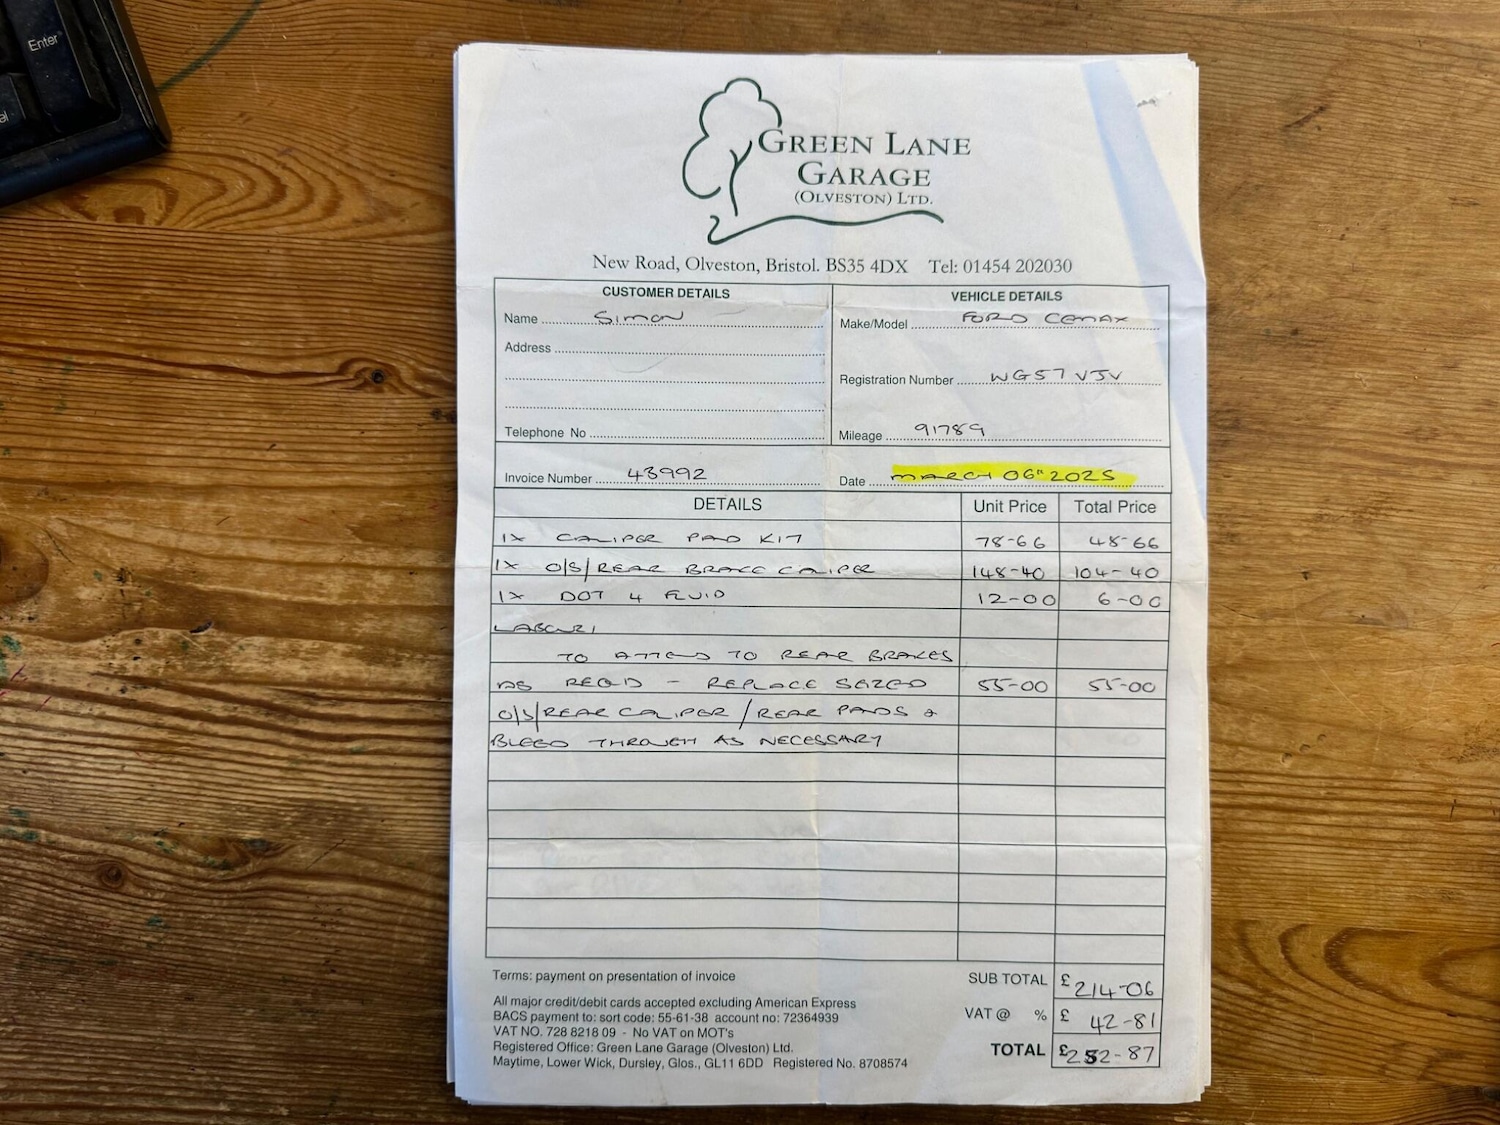 Enter
GREEN LANE
GARAGE
(OLVESTON) LTD.
New Road, Olveston, Bristol. BS35 4DX Tel: 01454 202030
CUSTOMER DETAILS
Name Simon
Address
Telephone No
VEHICLE DETAILS
Make/Model FORD CEMAX
Registration Number WG57 VJV
Mileage 91789
Invoice Number 43992
Date MARCH 06TH 2025
DETAILS Unit Price Total Price
1X CALIPER PAD KIT 78-66 48-66
1X O/S/REAR BRAKE CALIPER 148-40 104-40
1X DOT 4 FLUID 12-00 6-00
LABOUR!
TO ATTEND TO REAR BRAKES
AS REQD - REPLACE SEIZED 55-00 55-00
O/S/REAR CALIPER / REAR PADS &
BLEED THROUGH AS NECESSARY
Terms: payment on presentation of invoice
All major credit/debit cards accepted excluding American Express
BACS payment to: sort code: 55-61-38 account no: 72364939
VAT NO. 728 8218 09 - No VAT on MOT's
Registered Office: Green Lane Garage (Olveston) Ltd.
Maytime, Lower Wick, Dursley, Glos., GL11 6DD Registered No. 8708574
SUB TOTAL £ 214-06
VAT @ % £ 42-81
TOTAL £252-87